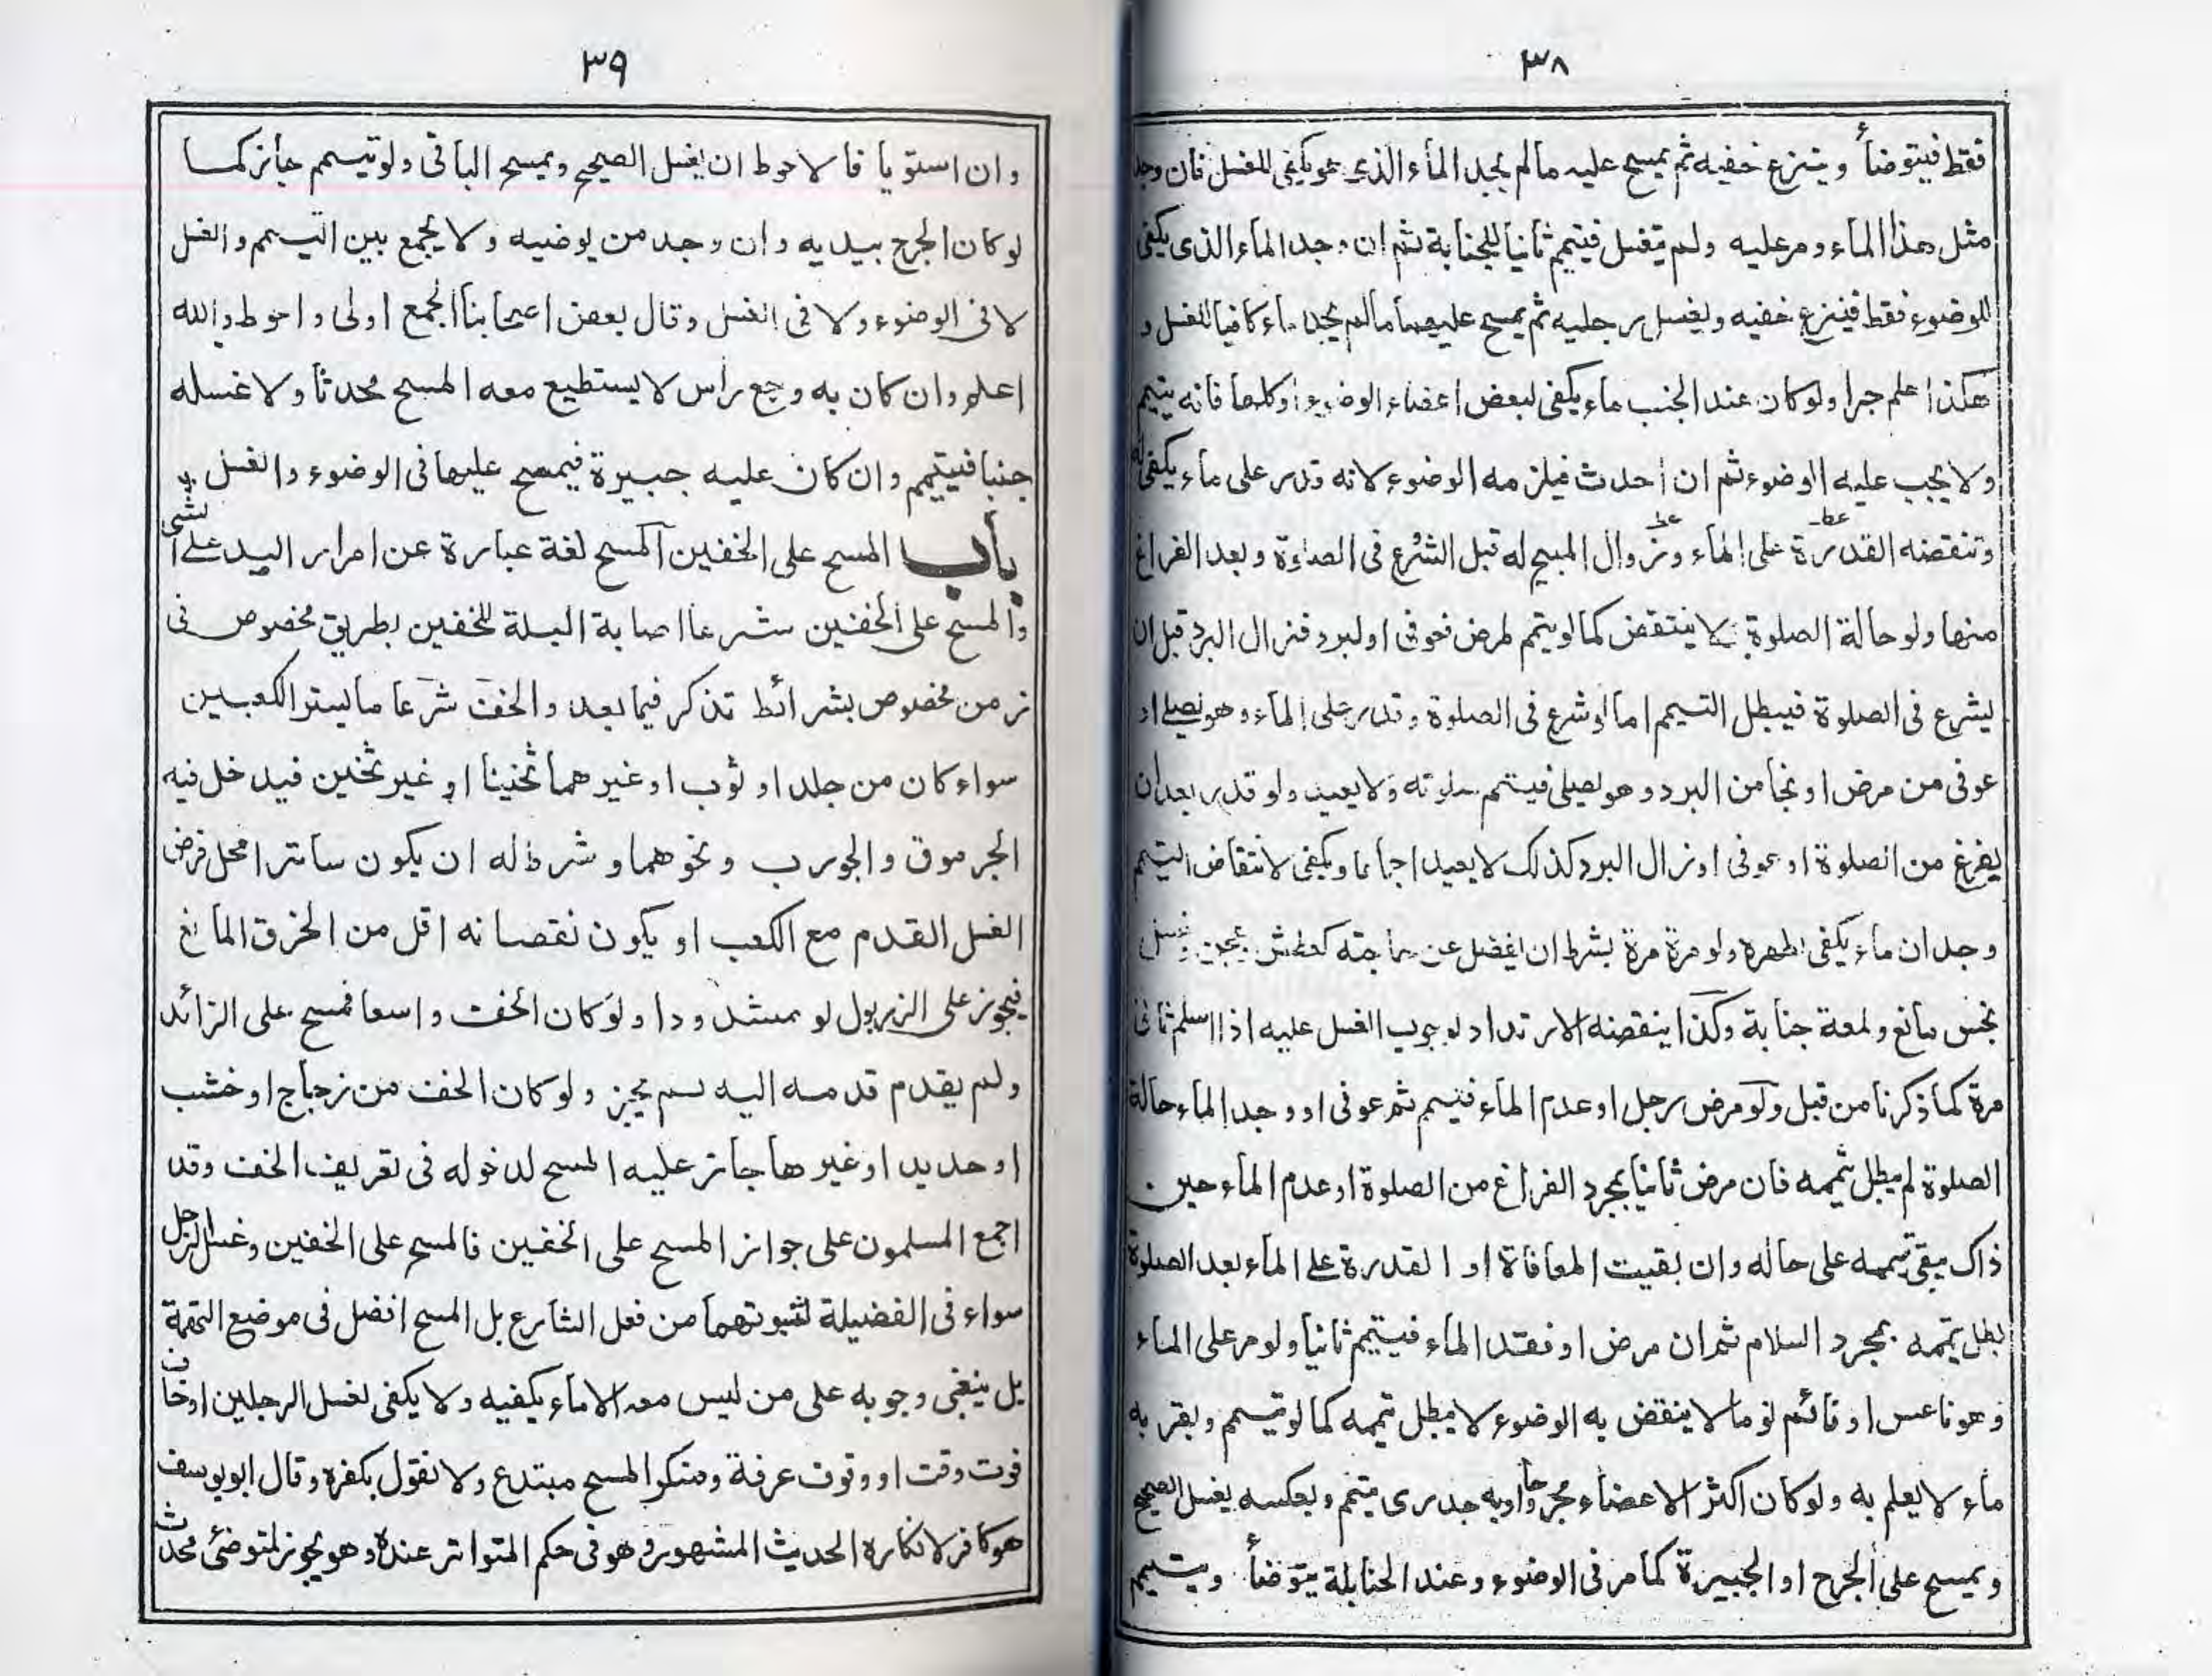 ٣٨
فقط فيتوضأ وينزع خفيه ثم يمسح عليه مالم يجد الماء الذى هو يكفى للغسل فان وجد
مثل هذا الماء ومر عليه ولم يغتسل فيتيمم ثانيا للجنابة ثم ان وجد الماء الذى يكفى
للوضوء فقط فينزع خفيه ويغسل رجليه ثم يمسح عليهما مالم يجد ماء كافيا للغسل و
هكذا هلم جرا ولو كان عند الجنب ماء يكفى لبعض اعضاء الوضوء او كلها فانه يتيمم
ولا يجب عليه الوضوء ثم ان احدث فيلزمه الوضوء لانه قدر على ماء يكفى له
وتنقضه القدرة على الماء وزوال المبيح له قبل الشرع فى الصلوة وبعد الفراغ
منها ولو حالة الصلوة لا ينتقض كما لو يتمم لمرض فعوفى او لبرد فزال البرد قبل ان
يشرع فى الصلوة فيبطل التيمم اما لو شرع فى الصلوة وقدر على الماء وهو يصلى او
عوفى من مرض او نجا من البرد وهو يصلى فيتمم صلوته ولا يعيد ولو قدر بعد ان
يفرغ من الصلوة او عوفى او زال البرد كذلك لا يعيد اجماعا ويكفى لانتقاض التيمم
وجدان ماء يكفى لطهره ولو مرة مرة بشرط ان يفضل عن حاجته كعطش وعجن وغسل
نجس مانع ولمعة جنابة وكذا ينقضه الارتداد لوجوب الغسل عليه اذا اسلم ثانى
مرة كما ذكرنا من قبل ولو مرض رجل او عدم الماء فتيمم ثم عوفى او وجد الماء حالة
الصلوة لم يبطل تيممه فان مرض ثانيا بمجرد الفراغ من الصلوة او عدم الماء حين
ذاك يبقى تيممه على حاله وان بقيت المعافاة او القدرة على الماء بعد الصلوة
بطل تيممه بمجرد السلام ثم ان مرض او فقد الماء فيتيمم ثانيا ولو مر على الماء
وهو ناعس او نائم نوما لا ينقض به الوضوء لا يبطل تيممه كما لو تيمم وبقربه
ماء لا يعلم به ولو كان اكثر الاعضاء مجروحا او به جدرى يتمم وبعكسه يغسل الصحيح
ويمسح على الجرح او الجبيرة كما مر فى الوضوء وعند الحنابلة يتوضأ ويتيمم
٣٩
وان استويا فالاحوط ان يغسل الصحيح ويمسح الباقى ولو تيمم جائز كما
لو كان الجرح بيديه وان وجد من يوضيه ولا يجمع بين التيمم والغسل
لا فى الوضوء ولا فى الغسل وقال بعض اصحابنا الجمع اولى واحوط والله
اعلم وان كان به وجع راس لا يستطيع معه المسح محدثا ولا غسله
جنبا فيتيمم وان كان عليه جبيرة فيمسح عليها فى الوضوء والغسل
باب المسح على الخفين المسح لغة عبارة عن امرار اليد على الشى
والمسح على الخفين شرعا اصابة البلة للخفين بطريق مخصوص فى
زمن مخصوص بشرائط تذكر فيما بعد والخف شرعا ما يستر الكعبين
سواء كان من جلد او ثوب او غيرهما ثخينا او غير ثخين فيدخل فيه
الجرموق والجورب ونحوهما و شرط له ان يكون ساترا محل فرض
الغسل القدم مع الكعب او يكون نقصانه اقل من الخرق المانع
فيجوز على الزربول لو مشدودا ولو كان الخف واسعا فمسح على الزائد
ولم يقدم قدمه اليه لم يجز ولو كان الخف من زجاج او خشب
او حديد او غيرها جاز عليه المسح لدخوله فى تعريف الخف وقد
اجمع المسلمون على جواز المسح على الخفين فالمسح على الخفين وغسل الرجل
سواء فى الفضيلة لثبوتهما من فعل الشارع بل المسح افضل فى موضع التهمة
بل ينبغى وجوبه على من ليس معه الا ماء يكفيه ولا يكفى لغسل الرجلين او خاف
فوت وقت او وقوف عرفة ومنكر المسح مبتدع ولا نقول بكفره وقال ابو يوسف
هو كافر لانكاره الحديث المشهور وهو فى حكم المتواتر عنده وهو يجوز لمتوضئ محدث